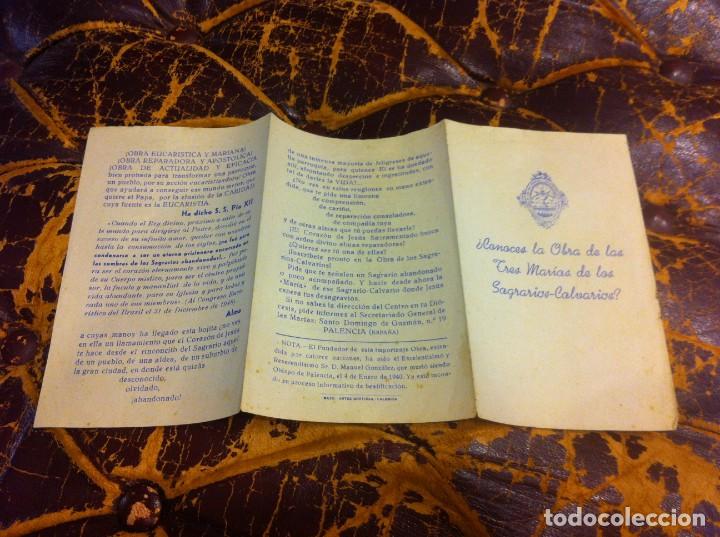 ¡OBRA EUCARISTICA Y MARIANA!
¡OBRA REPARADORA Y APOSTOLICA!
¡OBRA DE ACTUALIDAD Y EFICACIA
bien probada para transformar una parroquia,
un pueblo, por su acción eucaristizadora! Obra
que ayudará a conseguir ese mundo mejor, que
quiere el Papa, por la efusión de la CARIDAD
cuya fuente es la EUCARISTIA.
Ha dicho S. S. Pío XII
«Cuando el Rey divino, próximo a salir de es-
te mundo para dirigirse al Padre, decidió en el
exceso de su infinito amor, quedar con nosotros
hasta la consumación de los siglos, ¿se fué para
condenarse a ser un eterno prisionero encerrado en
las sombras de los Sagrarios abandonados?... fué pa-
ra ser el corazón eternamente vivo y palpitante
de su Cuerpo místico, para ser el centro propul-
sor, la fuente
vida abundante para su Iglesia y para todos y
cada uno de sus miembros». (Al Congreso Euca-
rístico del Brasil el 31 de Diciembre de 1948)
Alma
a cuyas manos ha llegado esta hojita que ves
en ella un llamamiento que el Corazón de Jesús
te hace desde el rinconcito del Sagrario aquel
de un pueblo, de una aldea, de un suburbio de
la gran ciudad, en donde está quizás
desconocido,
olvidado,
¡abandonado!
de una inmensa mayoría de feligreses de aquella
parroquia, para quienes El se ha quedado
allí, afrontando desprecios e ingratitudes, con
tal de darles la VIDA?...
¿No ves en estos renglones su mano exten-
dida, que te pide una limosna
de comprensión,
de cariño,
de reparación consoladora,
de compañía
y de otras almas que tú puedas llevarle?
¡El Corazón de Jesús Sacramentado busca
con ardor divino almas reparadoras!
¿Quieres ser tú una de ellas?
¡Inscríbete pronto en la Obra de los Sagra-
rios-Calvarios!
Pide que te señalen un Sagrario abandonado
o poco acompañado. Y hazte desde ahora
«María» de ese Sagrario-Calvario donde Jesús
espera tus desagravios.
Si no sabes la dirección del Centro en tu Dió-
cesis, pide informes al Secretariado General de
las Marías: Santo Domingo de Guzmán, n.º 19
PALENCIA (ESPAÑA)
NOTA.—El Fundador de esta importante Obra, exten-
dida por catorce naciones, ha sido el Excelentísimo y
Reverendísimo Sr. D. Manuel González, que murió siendo
Obispo de Palencia, el 4 de Enero de 1940. Ya está incoa-
do su proceso informativo de beatificación.
¿Conoces la Obra de las
Tres Marías de los
Sagrarios-Calvarios?
todocoleccion.net